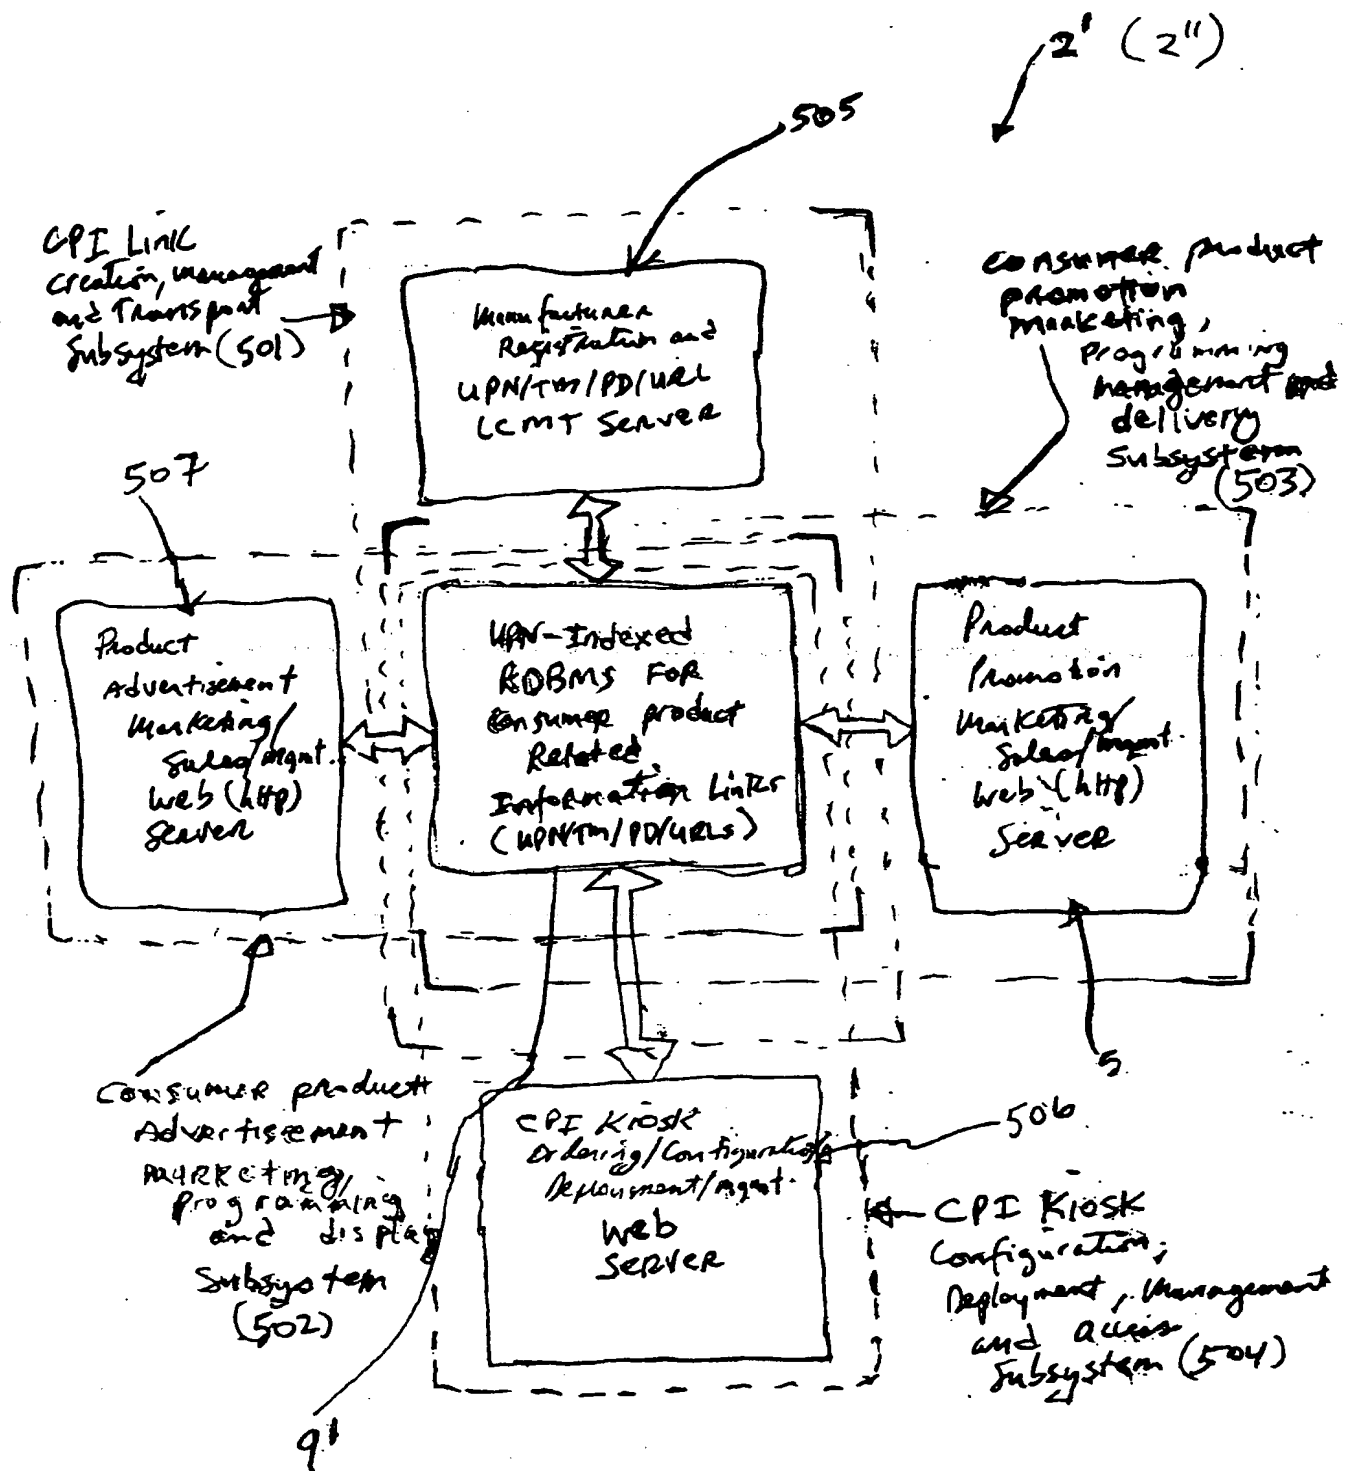 2' (2")
505
CPI Link
Creation, Management
and Transport
Subsystem (501)
Manufacturer
Registration and
UPN/TM/PD/URL
LCMT Server
Consumer product
promotion
marketing,
Programming
management and
delivery
Subsystem
(503)
507
Product
Advertisement
Marketing/
Sales/mgmt.
Web (http)
Server
UPN-Indexed
RDBMS FOR
Consumer product
Related
Information Links
(UPN/TM/PD/URLs)
Product
Promotion
Marketing/
Sales/mgmt.
Web (http)
Server
5
Consumer product
Advertisement
Marketing,
programming
and display
Subsystem
(502)
CPI Kiosk
Ordering/Configuration
Deployment/mgmt.
Web
Server
506
CPI Kiosk
Configuration,
Deployment, Management
and access
Subsystem (504)
9'